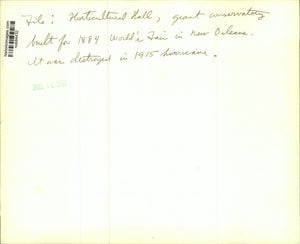 File: Horticultural Hall, giant conservatory
built for 1884 World's Fair in New Orleans.
It was destroyed in 1915 hurricane.